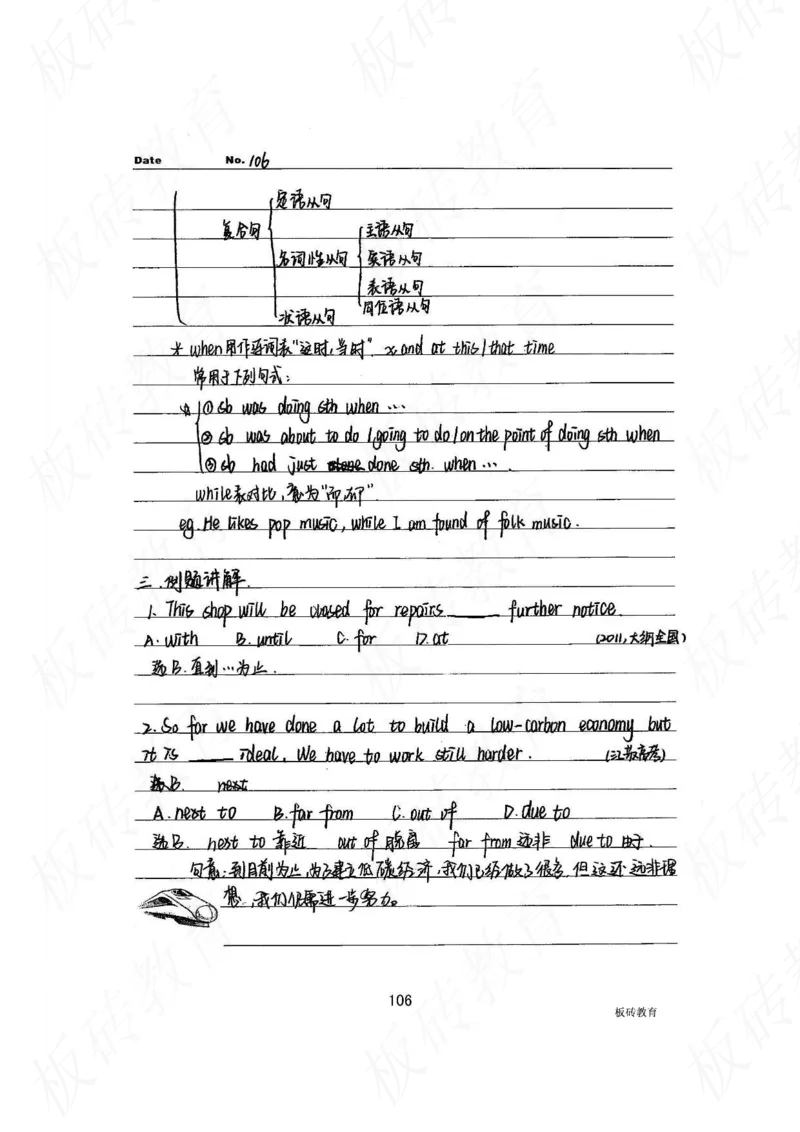 Date No. 106
定语从句
复合句 主语从句
名词性从句 宾语从句
表语从句
同位语从句
状语从句
* when用作连词表"这时,当时". x and at this / that time
常用于下列句式:
① sb was doing sth when …
② sb was about to do / going to do / on the point of doing sth when
③ sb had just done sth. when … .
while表对比,意为"而,却".
eg. He likes pop music, while I am found of folk music.
三.例题讲解.
1. This shop will be closed for repairs ____ further notice.
A. with B. until C. for D. at (2011,大纲全国)
选B.直到…为止.
2. So far we have done a lot to build a low-carbon economy but
it is ____ ideal. We have to work still harder. (江苏高考)
选B. next
A. next to B. far from C. out of D. due to
选B. next to 靠近 out of 脱离 far from 远非 due to 由于.
句意:到目前为止,为了建立低碳经济,我们已经做了很多,但这还远非理
想,我们仍需进一步努力。
106
板砖教育